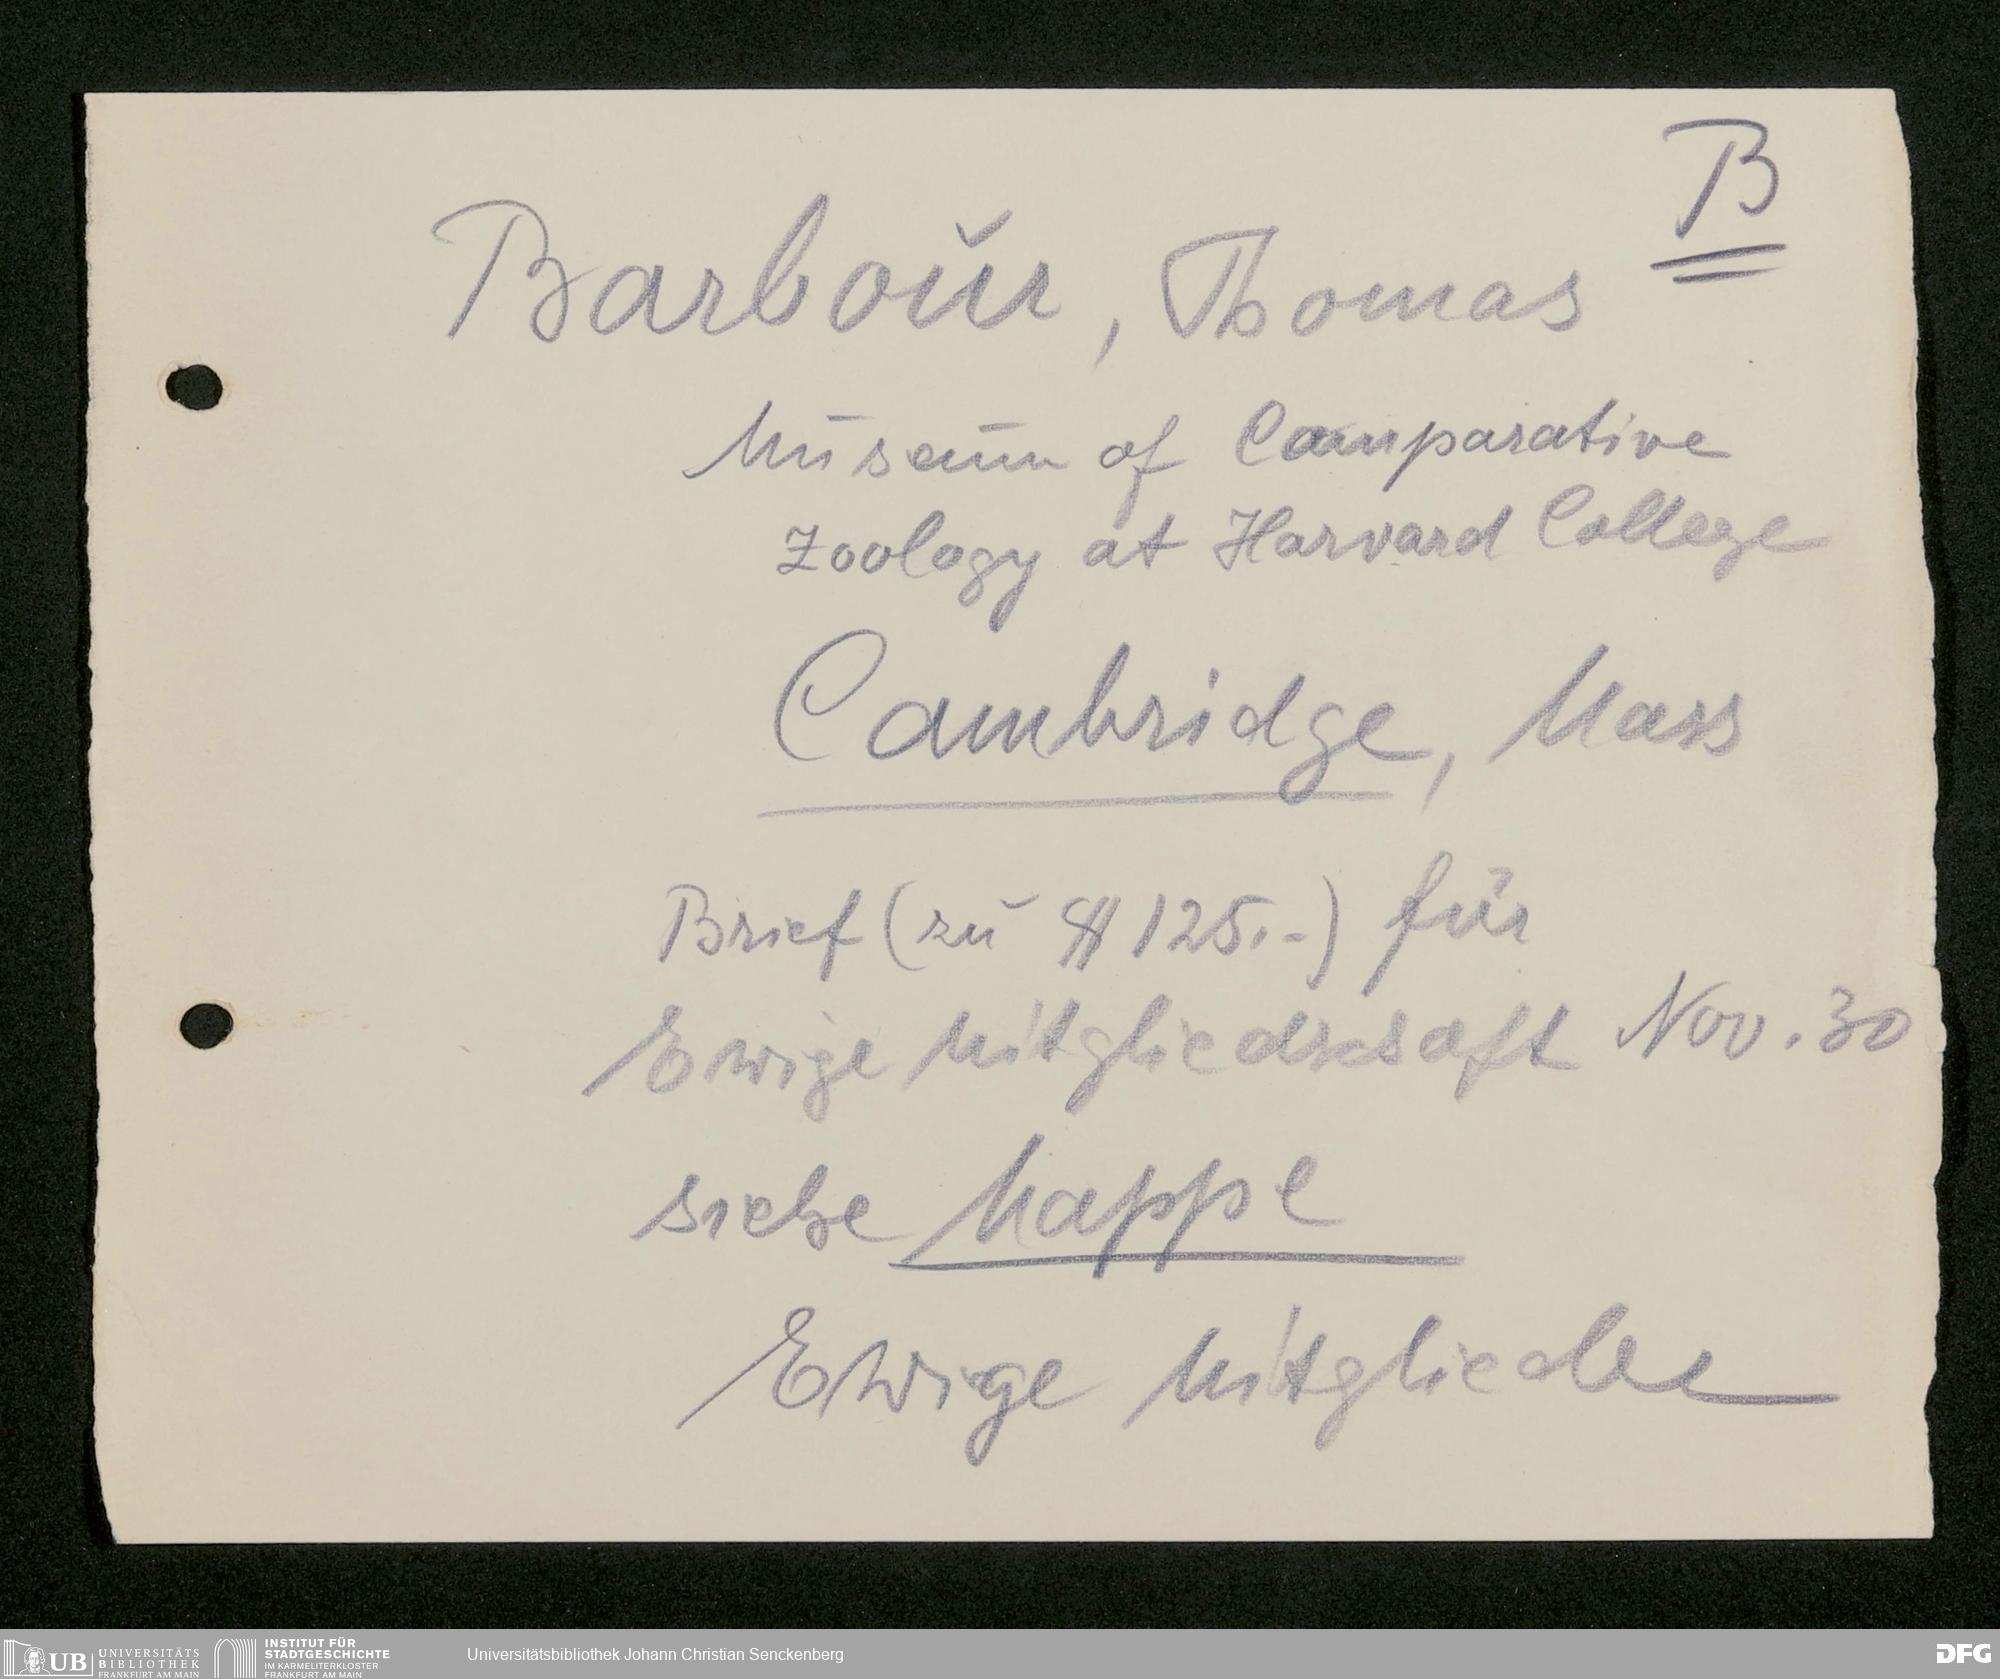 B
Barbour, Thomas
Museum of Comparative
Zoology at Harvard College
Cambridge, Mass
Brief (zu $ 125.-) für
Ewige Mitgliedschaft Nov. 30
siehe Mappe
Ewige Mitglieder
UB UNIVERSITÄTS
BIBLIOTHEK
FRANKFURT AM MAIN
INSTITUT FÜR
STADTGESCHICHTE
IM KARMELITERKLOSTER
FRANKFURT AM MAIN
Universitätsbibliothek Johann Christian Senckenberg
DFG